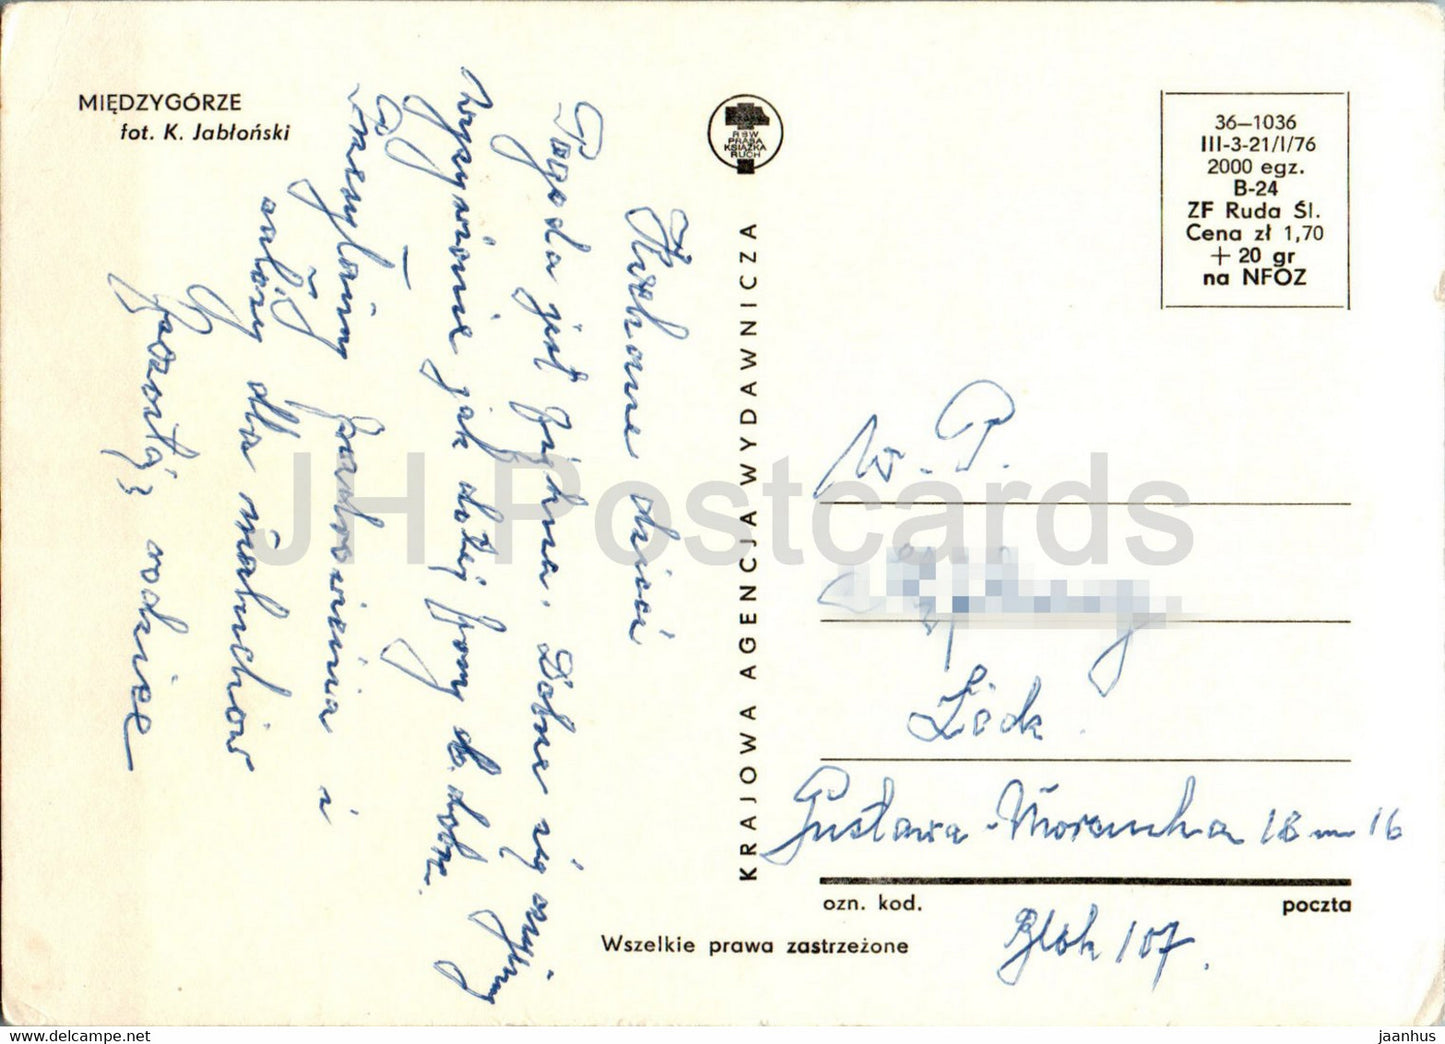 MIĘDZYGÓRZE
fot. K. Jabłoński
RSW
PRASA
KSIĄŻKA
RUCH
KRAJOWA AGENCJA WYDAWNICZA
36—1036
III-3-21/I/76
2000 egz.
B-24
ZF Ruda Śl.
Cena zł 1,70
+ 20 gr
na NFOZ
Kochane dzieci
Pogoda jest piękna. Dobrze się czujemy
Wyżywienie jak dotej pory db. dobre.
Przesyłamy pozdrowienia i
całusy dla maluchów
rodzice
W. P.
Łódź
Gustawa Morcinka 18 m 16
Blok 107.
ozn. kod.
poczta
Wszelkie prawa zastrzeżone
JH Postcards
www.hippostcard.com
jaanhus